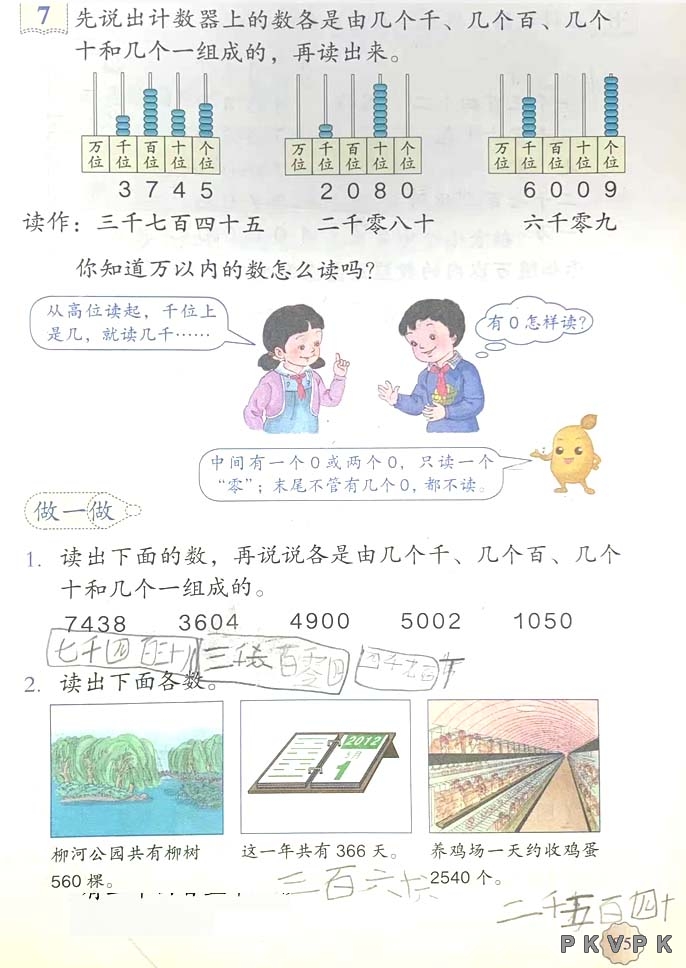 7 先说出计数器上的数各是由几个千、几个百、几个
十和几个一组成的，再读出来。
万位 千位 百位 十位 个位 万位 千位 百位 十位 个位 万位 千位 百位 十位 个位
3 7 4 5 2 0 8 0 6 0 0 9
读作：三千七百四十五 二千零八十 六千零九
你知道万以内的数怎么读吗？
从高位读起，千位上
是几，就读几千……
有0怎样读？
中间有一个0或两个0，只读一个
“零”；末尾不管有几个0，都不读。
做一做
1. 读出下面的数，再说说各是由几个千、几个百、几个
十和几个一组成的。
7438 3604 4900 5002 1050
七千四百三十八 三千六百零四 四千九百
2. 读出下面各数。
2012
5月
1
柳河公园共有柳树
560棵。
这一年共有366天。
养鸡场一天约收鸡蛋
2540个。
三百六
二千五百四十
PKVPK